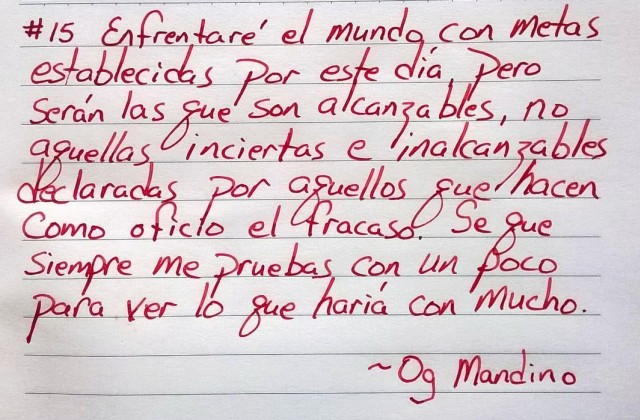 #15 Enfrentaré el mundo con metas
establecidas por este día, pero
serán las que son alcanzables, no
aquellas inciertas e inalcanzables
declaradas por aquellos que hacen
como oficio el fracaso. Se que
siempre me pruebas con un poco
para ver lo que hariá con mucho.
~Og Mandino